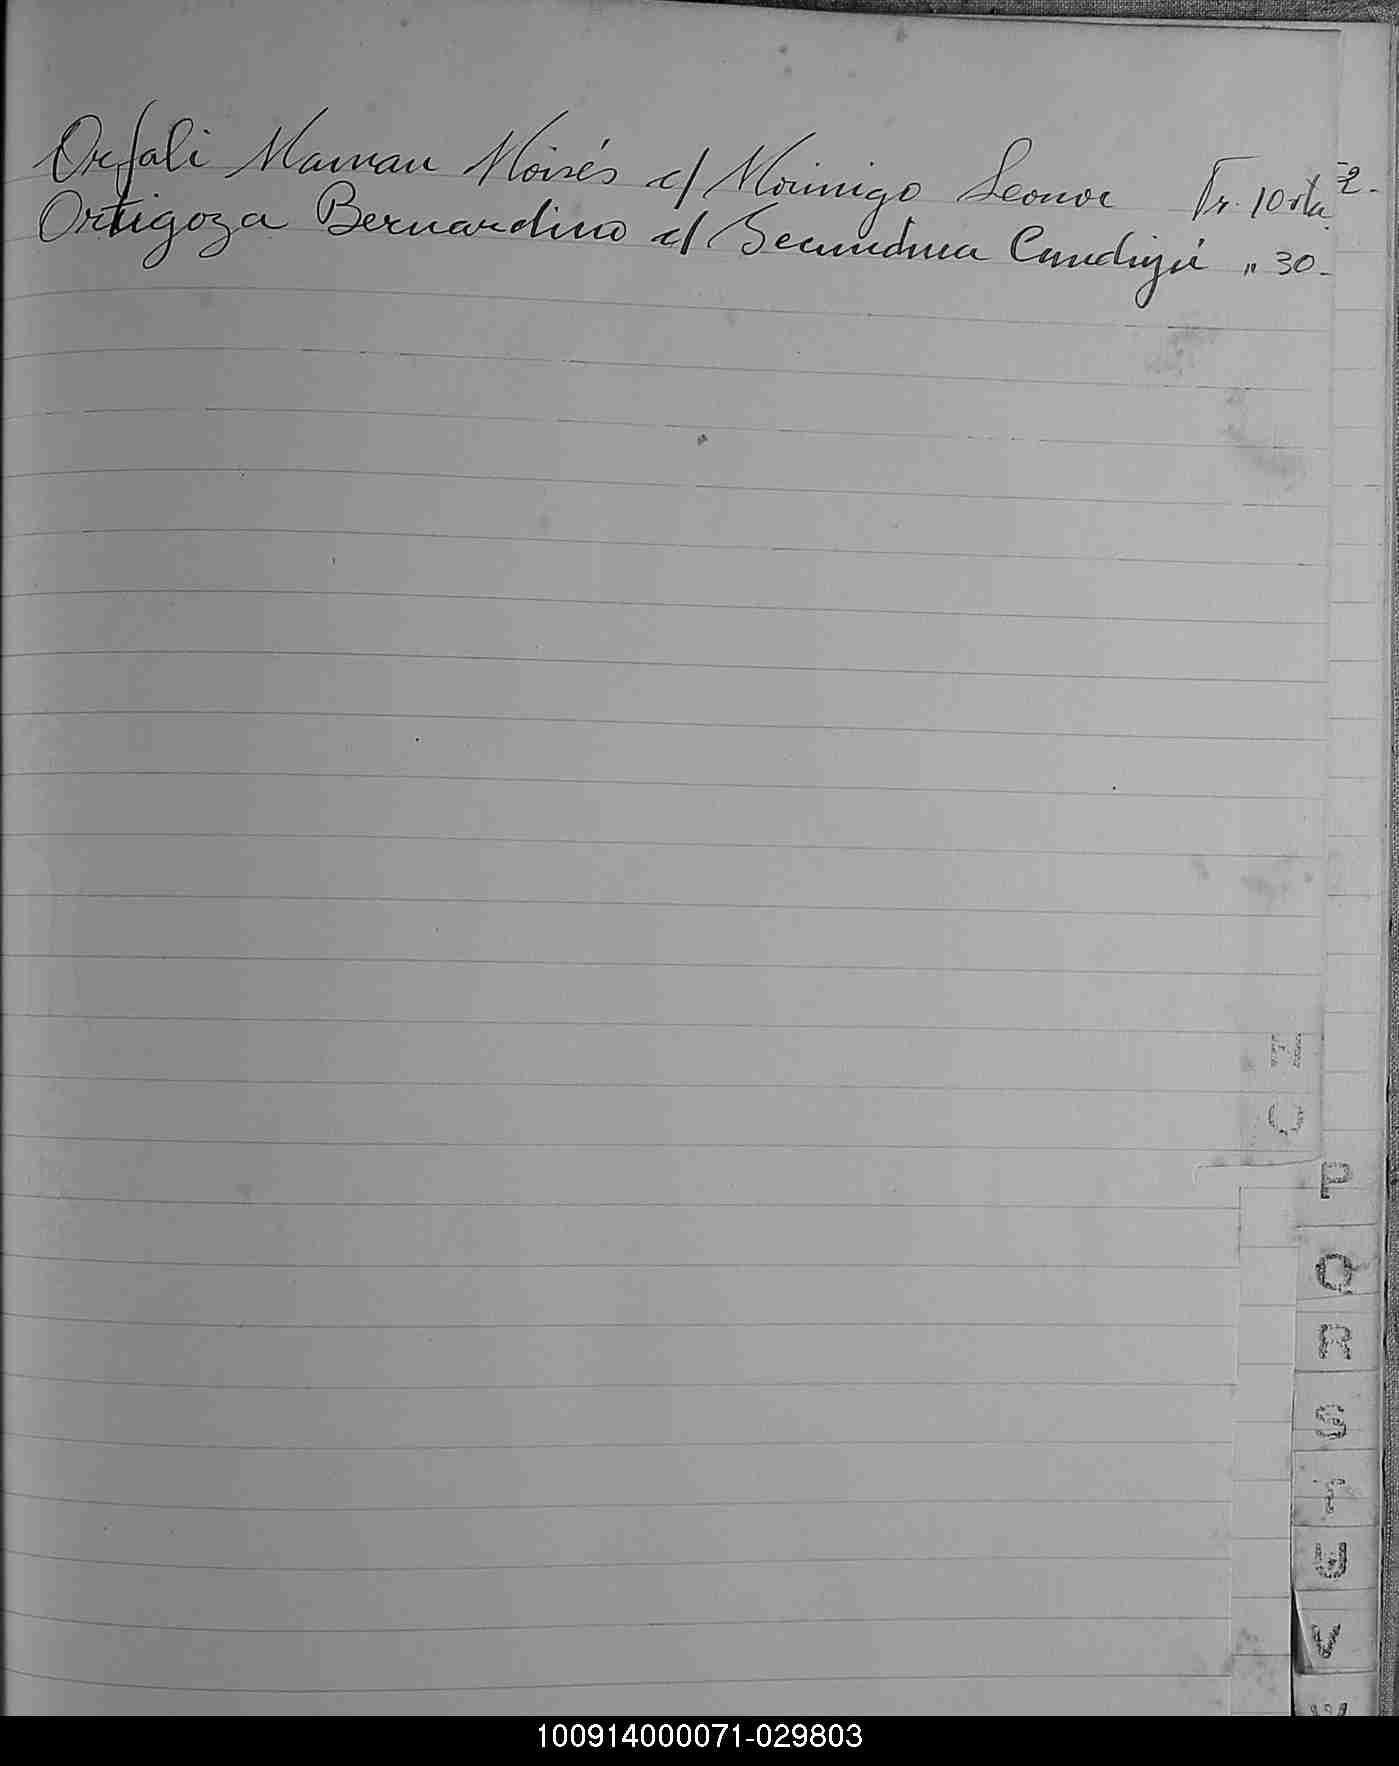 Orfali Maman Moisés c/ Morinigo Leonor Fr. 10 vta 2-
Ortigoza Bernardino c/ Secundina Cundigú " 30-
N
O
P
Q
R
S
T
U
V
W
100914000071-029803